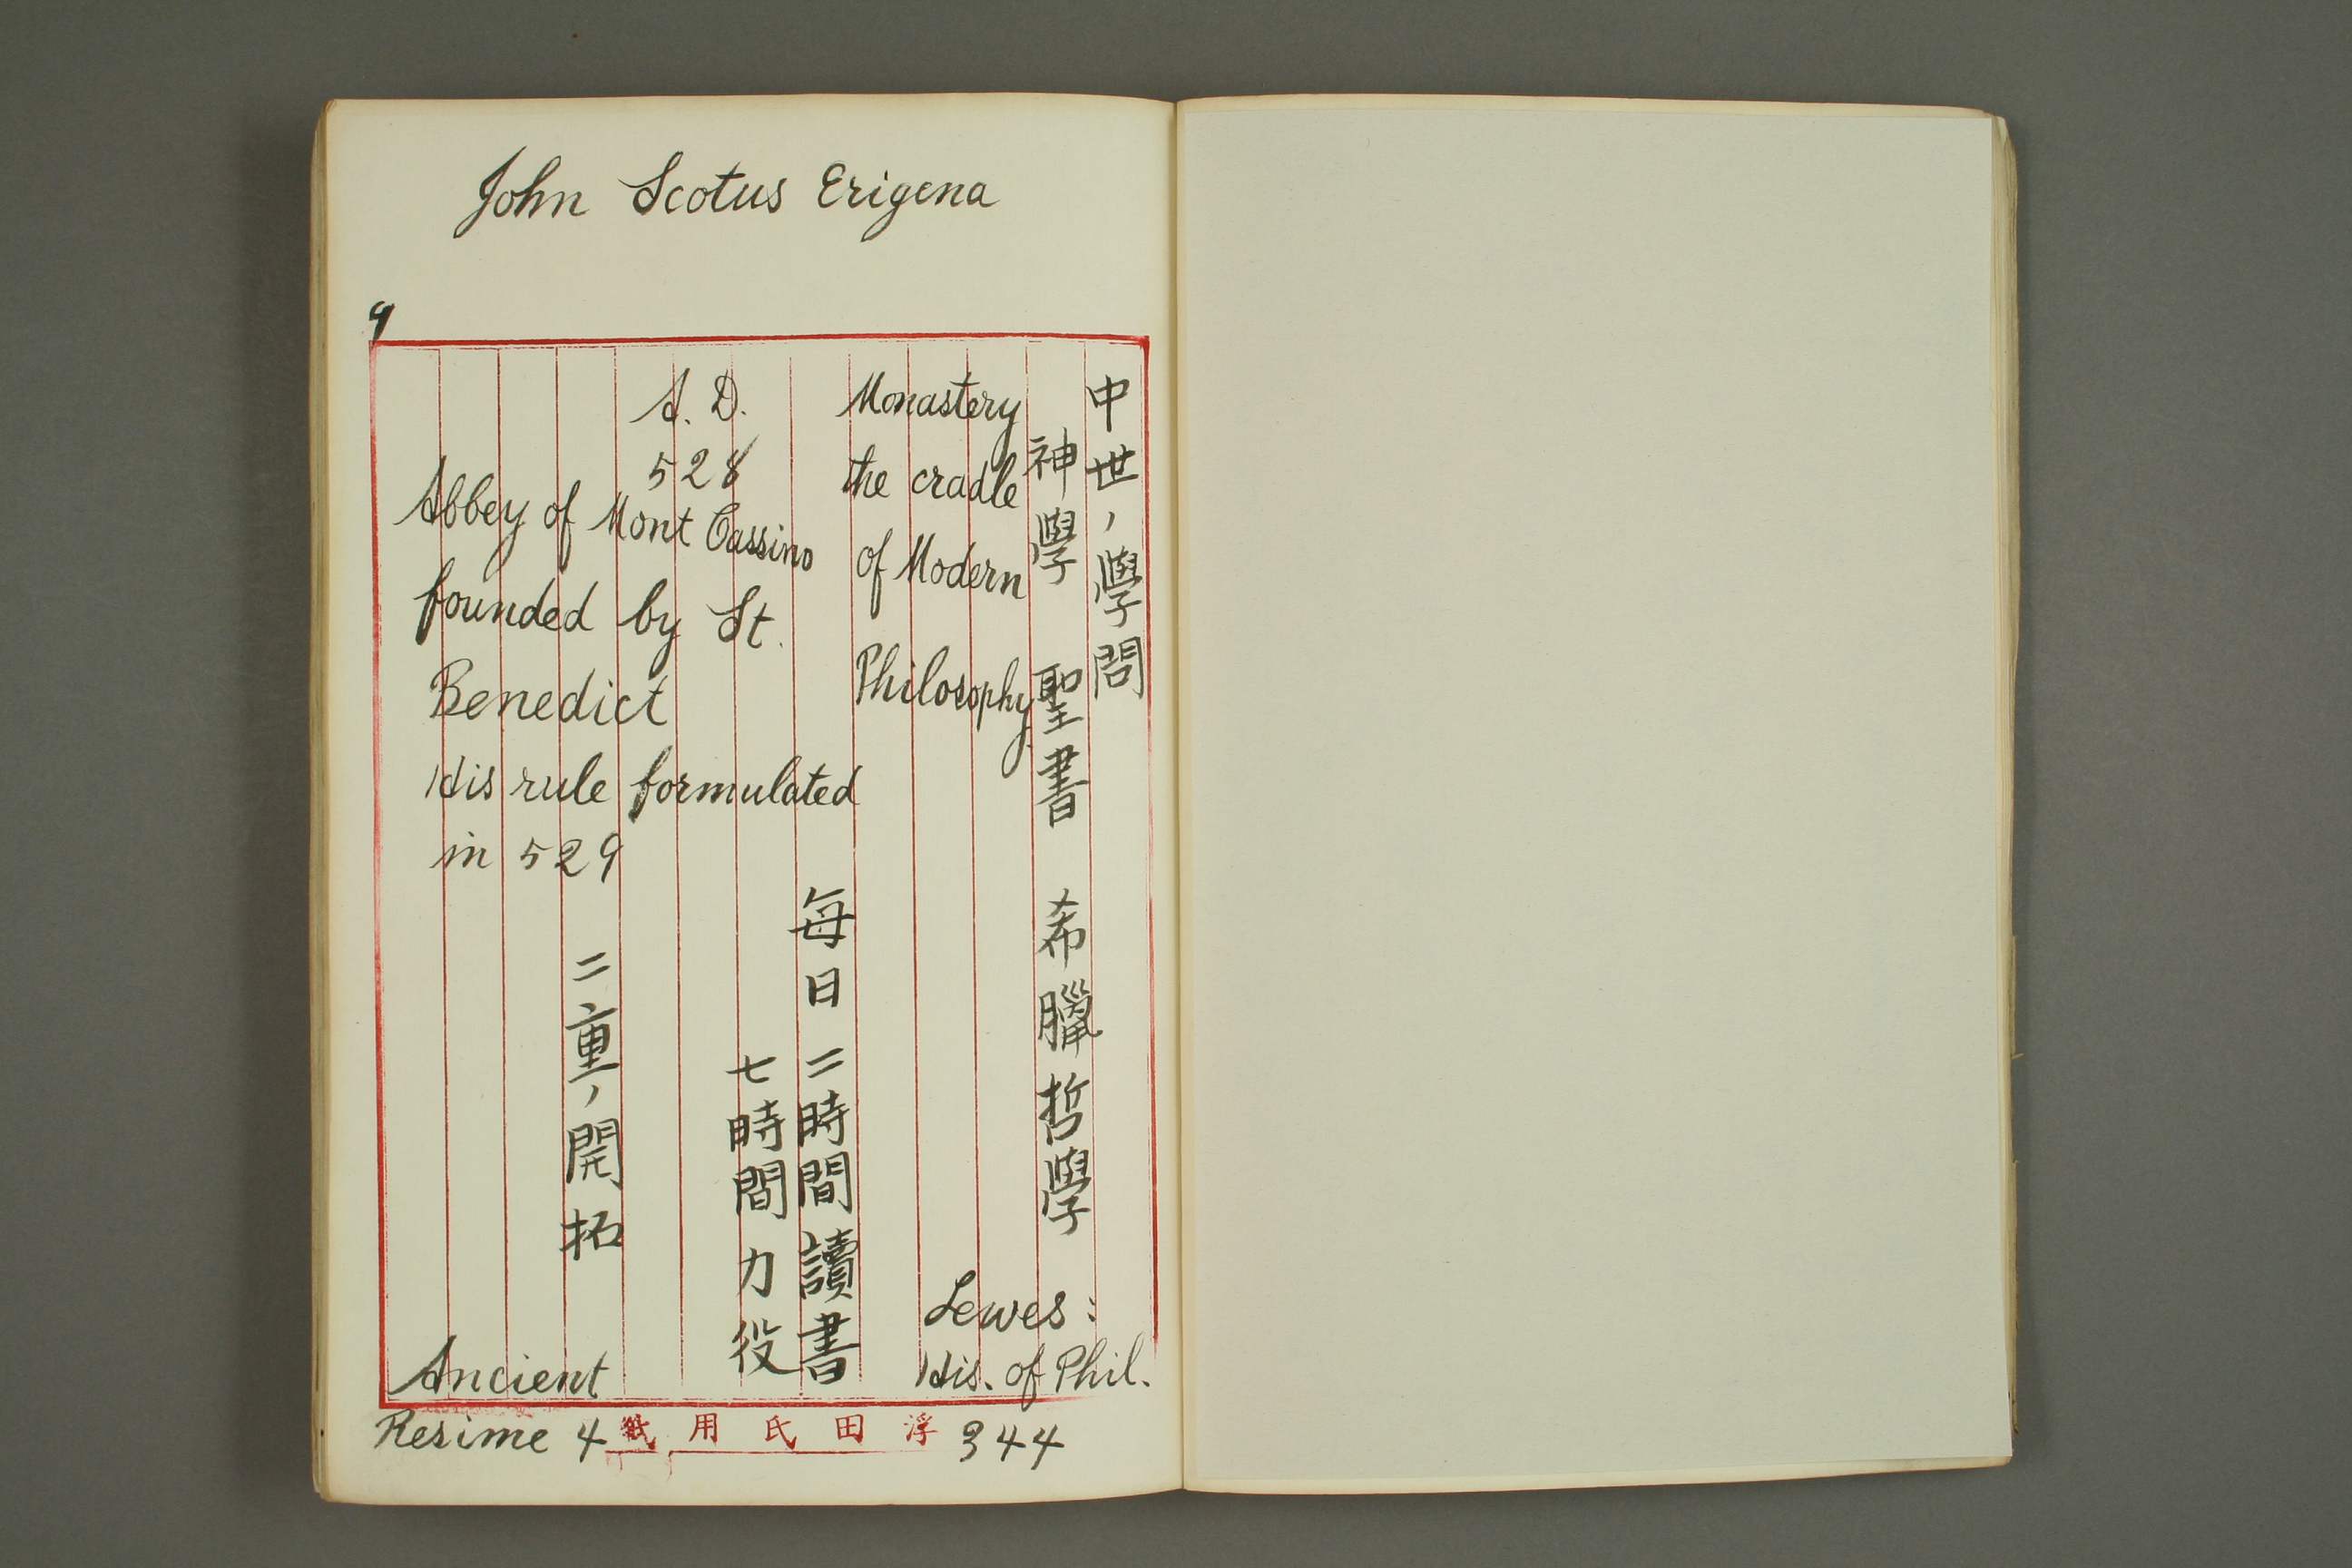 John Scotus Erigena
9
中世ノ學問
神學 聖書 希臘哲學
Monastery
the cradle
of Modern
Philosophy
Lewes:
His. of Phil.
344
A. D.
528
Abbey of Mont Cassino
founded by St.
Benedict
His rule formulated
in 529
每日 二時間讀書
七時間力役
二重ノ開拓
Ancient
Resime 4
浮田氏用紙